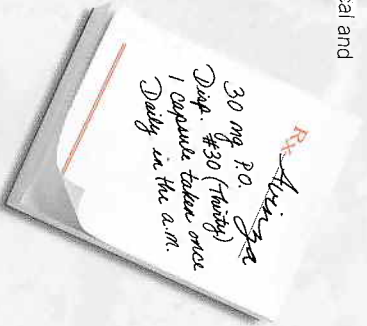 cal and
Rx Avinza
30 mg P.O.
Disp. #30 (Thirty)
1 capsule taken once
Daily in the a.m.